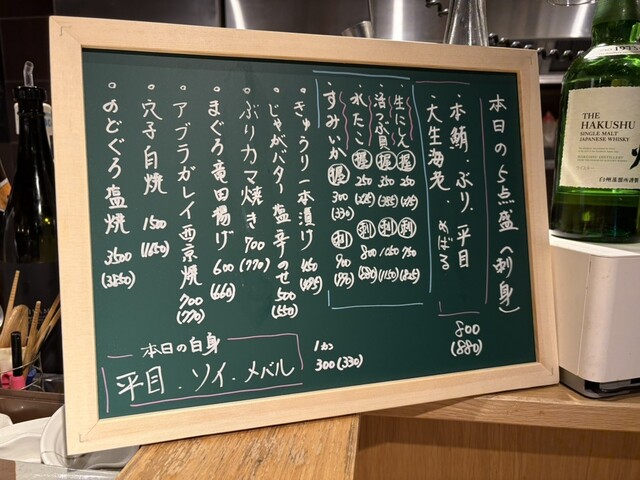 本日の5点盛(刺身)
本鮪.ぶり.平目
大生海老.めだる
800
(880)
生にしん 握 250 (275) 刺 750 (825)
活つぶ貝 握 350 (385) 刺
水たこ 握 250 刺 800 (880)
すみいか 握 300 (330) 刺 900
きゅうり一本漬け 450 (495)
じゃがバター 塩辛のせ 500 (550)
ぶりカマ焼き 700 (770)
まぐろ竜田揚げ 600 (660)
アブラガレイ西京焼 700 (770)
穴子白焼 1500 (1650)
のどぐろ塩焼 3500 (3850)
本日の白身
平目.ソイ.メバル
1カン
300 (330)
THE
HAKUSHU
SINGLE MALT
JAPANESE WHISKY